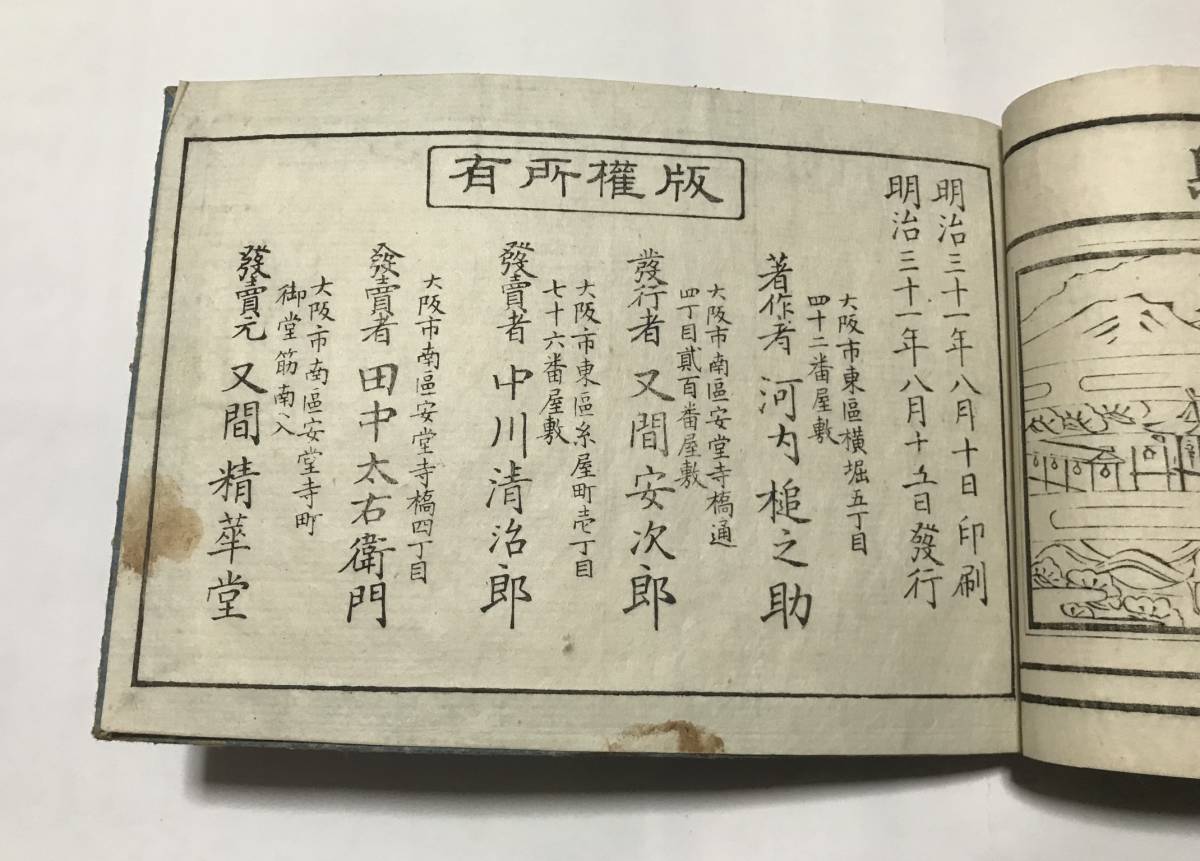 版權所有
明治三十一年八月十日印刷
明治三十一年八月十五日發行
大阪市東區横堀五丁目
四十二番屋敷
著作者 河内槌之助
大阪市南區安堂寺橋通
四丁目貳百番屋敷
發行者 又間安次郎
大阪市東區糸屋町壱丁目
七十六番屋敷
發賣者 中川清治郎
大阪市南區安堂寺橋四丁目
發賣者 田中太右衛門
大阪市南區安堂寺町
御堂筋南入
發賣元 又間精華堂